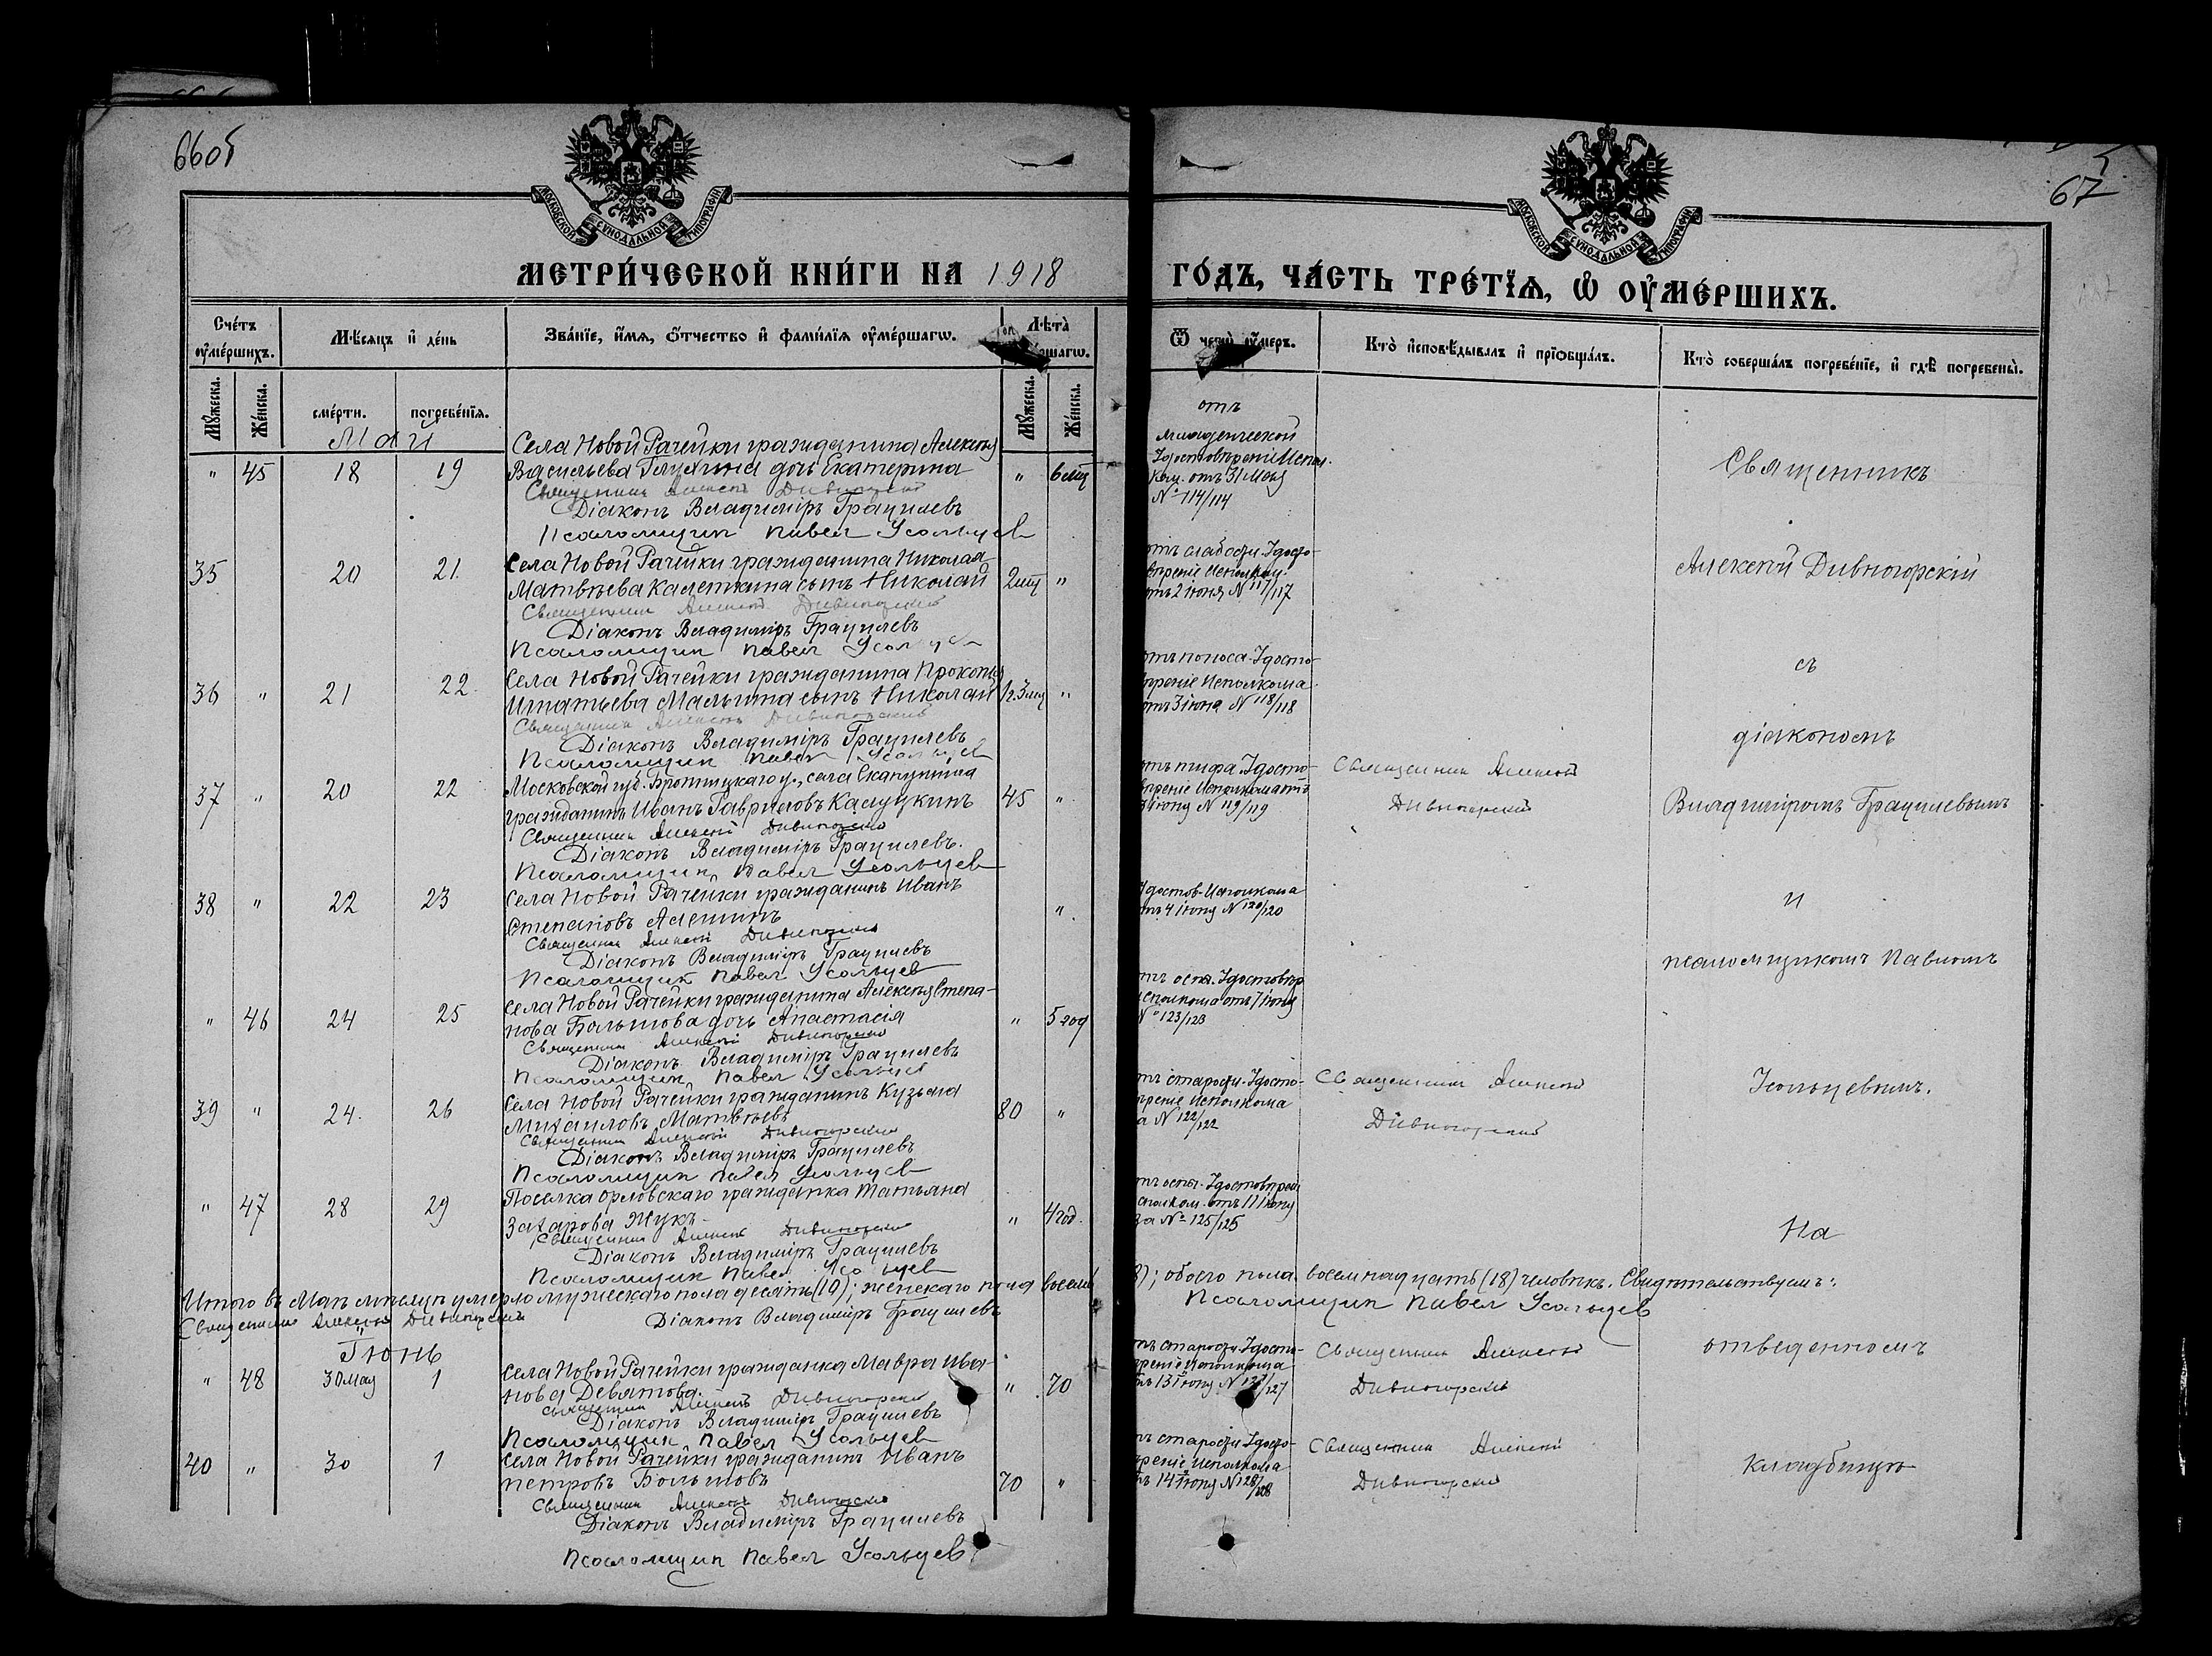 66об
67
МОСКОВСКОЙ СѴНОДАЛЬНОЙ ТИПОГРАФІИ
МОСКОВСКОЙ СѴНОДАЛЬНОЙ ТИПОГРАФІИ
МЕТРИ́ЧЕСКОЙ КНИ́ГИ НА 1918
ГО́ДЪ, ЧА́СТЬ ТРЕ́ТЇѦ, Ѡ ОУ҆МЕ́РШИХЪ.
Счетъ оумершихъ.
Мѣсяцъ и день
Званїе, имя, отчество и фамилїя оумершагѡ.
Лѣта
Ѿ чегѡ оумеръ.
Кто исповѣдывалъ и прїобщалъ.
Кто совершалъ погребенїе, и гдѣ погребены.
Мужеска.
Женска.
смерти.
погребенїя.
Мужеска.
Женска.
Май
" 45 18 19
Села Новой Рачейки гражданина Алексѣя
Васильева Глухина дочь Екатерина
" 6 мѣц
отъ
младенческой
Удостовѣреніе Испол.
Ком. отъ 31 Мая
№ 114/114
Священникъ Алексѣй Дивногорскій
Діаконъ Владиміръ Грацилевъ
Псаломщик Павел Усольцев
35 20 21
Села Новой Рачейки гражданина Николая
Матвѣева Калеткина сынъ Николай
2 мѣц "
отъ слабости. Удосто-
вѣреніе Исполком.
отъ 2 іюня № 117/117
Священникъ Алексѣй Дивногорскій
Діаконъ Владиміръ Грацилевъ
Псаломщик Павел Усольцев
36 " 21 22
Села Новой Рачейки гражданина Прокопія
Игнатьева Малыгина сынъ Николай
1г. 3 мѣц "
отъ поноса. Удосто-
вѣреніе Исполкома
отъ 3 іюня № 118/118
Священникъ Алексѣй Дивногорскій
Діаконъ Владиміръ Грацилевъ
Псаломщик Павел Усольцев
37 " 20 22
Московской губ. Бронницкаго у., села
гражданинъ Иванъ Гавриловъ
45 "
отъ тифа. Удосто-
вѣреніе Исполкома отъ
3 іюня № 119/119
Священник Алексей
Дивногорский
Священник Алексей Дивногорский
Діаконъ Владиміръ Грацилевъ.
Псаломщик Павел Усольцев
38 " 22 23
Села Новой Рачейки гражданинъ Иванъ
Степановъ Алешинъ
"
Удостов. Исполкома
отъ 4 іюня № 120/120
Священник Алексей Дивногорский
Діаконъ Владиміръ Грацилевъ
Псаломщик Павел Усольцев
" 46 24 25
Села Новой Рачейки гражданина Алексѣя Степа-
нова Большова дочь Анастасія
" 5 год
отъ оспы. Удостовѣр
Исполкома отъ 7 іюня
№ 123/123
Священник Алексей Дивногорский
Діаконъ Владиміръ Грацилевъ
Псаломщик Павел Усольцев
39 " 24 26
Села Новой Рачейки гражданинъ Кузьма
Михаиловъ Матвѣевъ
80 "
отъ старости. Удосто-
вѣреніе Исполкома
за № 122/122
Священник Алексей
Дивногорский
Священник Алексей Дивногорский
Діаконъ Владиміръ Грацилевъ
Псаломщик Павел Усольцев
" 47 28 29
Поселка Орловскаго гражданка Татьяна
Захарова Жукъ
" 4 год.
отъ оспы. Удостовѣреніе
Исполком. отъ 11 іюня
за № 125/125
Священник Алексей Дивногорский
Діаконъ Владиміръ Грацилевъ
Псаломщик Павел Усольцев
Итого въ Маѣ мѣсяцѣ умерло мужескаго пола десять (10); женскаго пола восемь
(8); обоего пола восемнадцать (18) человѣкъ. Свидѣтельствуемъ:
Священник Алексей Дивногорский Діаконъ Владиміръ Грацилевъ
Псаломщик Павел Усольцев
Іюнь
" 48 30 Мая 1
Села Новой Рачейки гражданка Мавра Ива-
нова Девятова.
" 70
отъ старости Удосто-
вѣреніе Исполкома
отъ 13 іюня № 127/127
Священник Алексей
Дивногорский
Священник Алексей Дивногорский
Діаконъ Владиміръ Грацилевъ
Псаломщик Павел Усольцев
40 " 30 1
Села Новой Рачейки гражданинъ Иванъ
Петровъ Большовъ
70 "
отъ старости Удосто-
вѣреніе Исполкома
отъ 14 іюня № 128/128
Священник Алексей
Дивногорский
Священник Алексей Дивногорский
Діаконъ Владиміръ Грацилевъ
Псаломщик Павел Усольцев
Священникъ
Алексѣй Дивногорскій
съ
діакономъ
Владиміромъ Грацилевымъ
и
псаломщикомъ Павломъ
Усольцевымъ.
На
отведенномъ
кладбищѣ